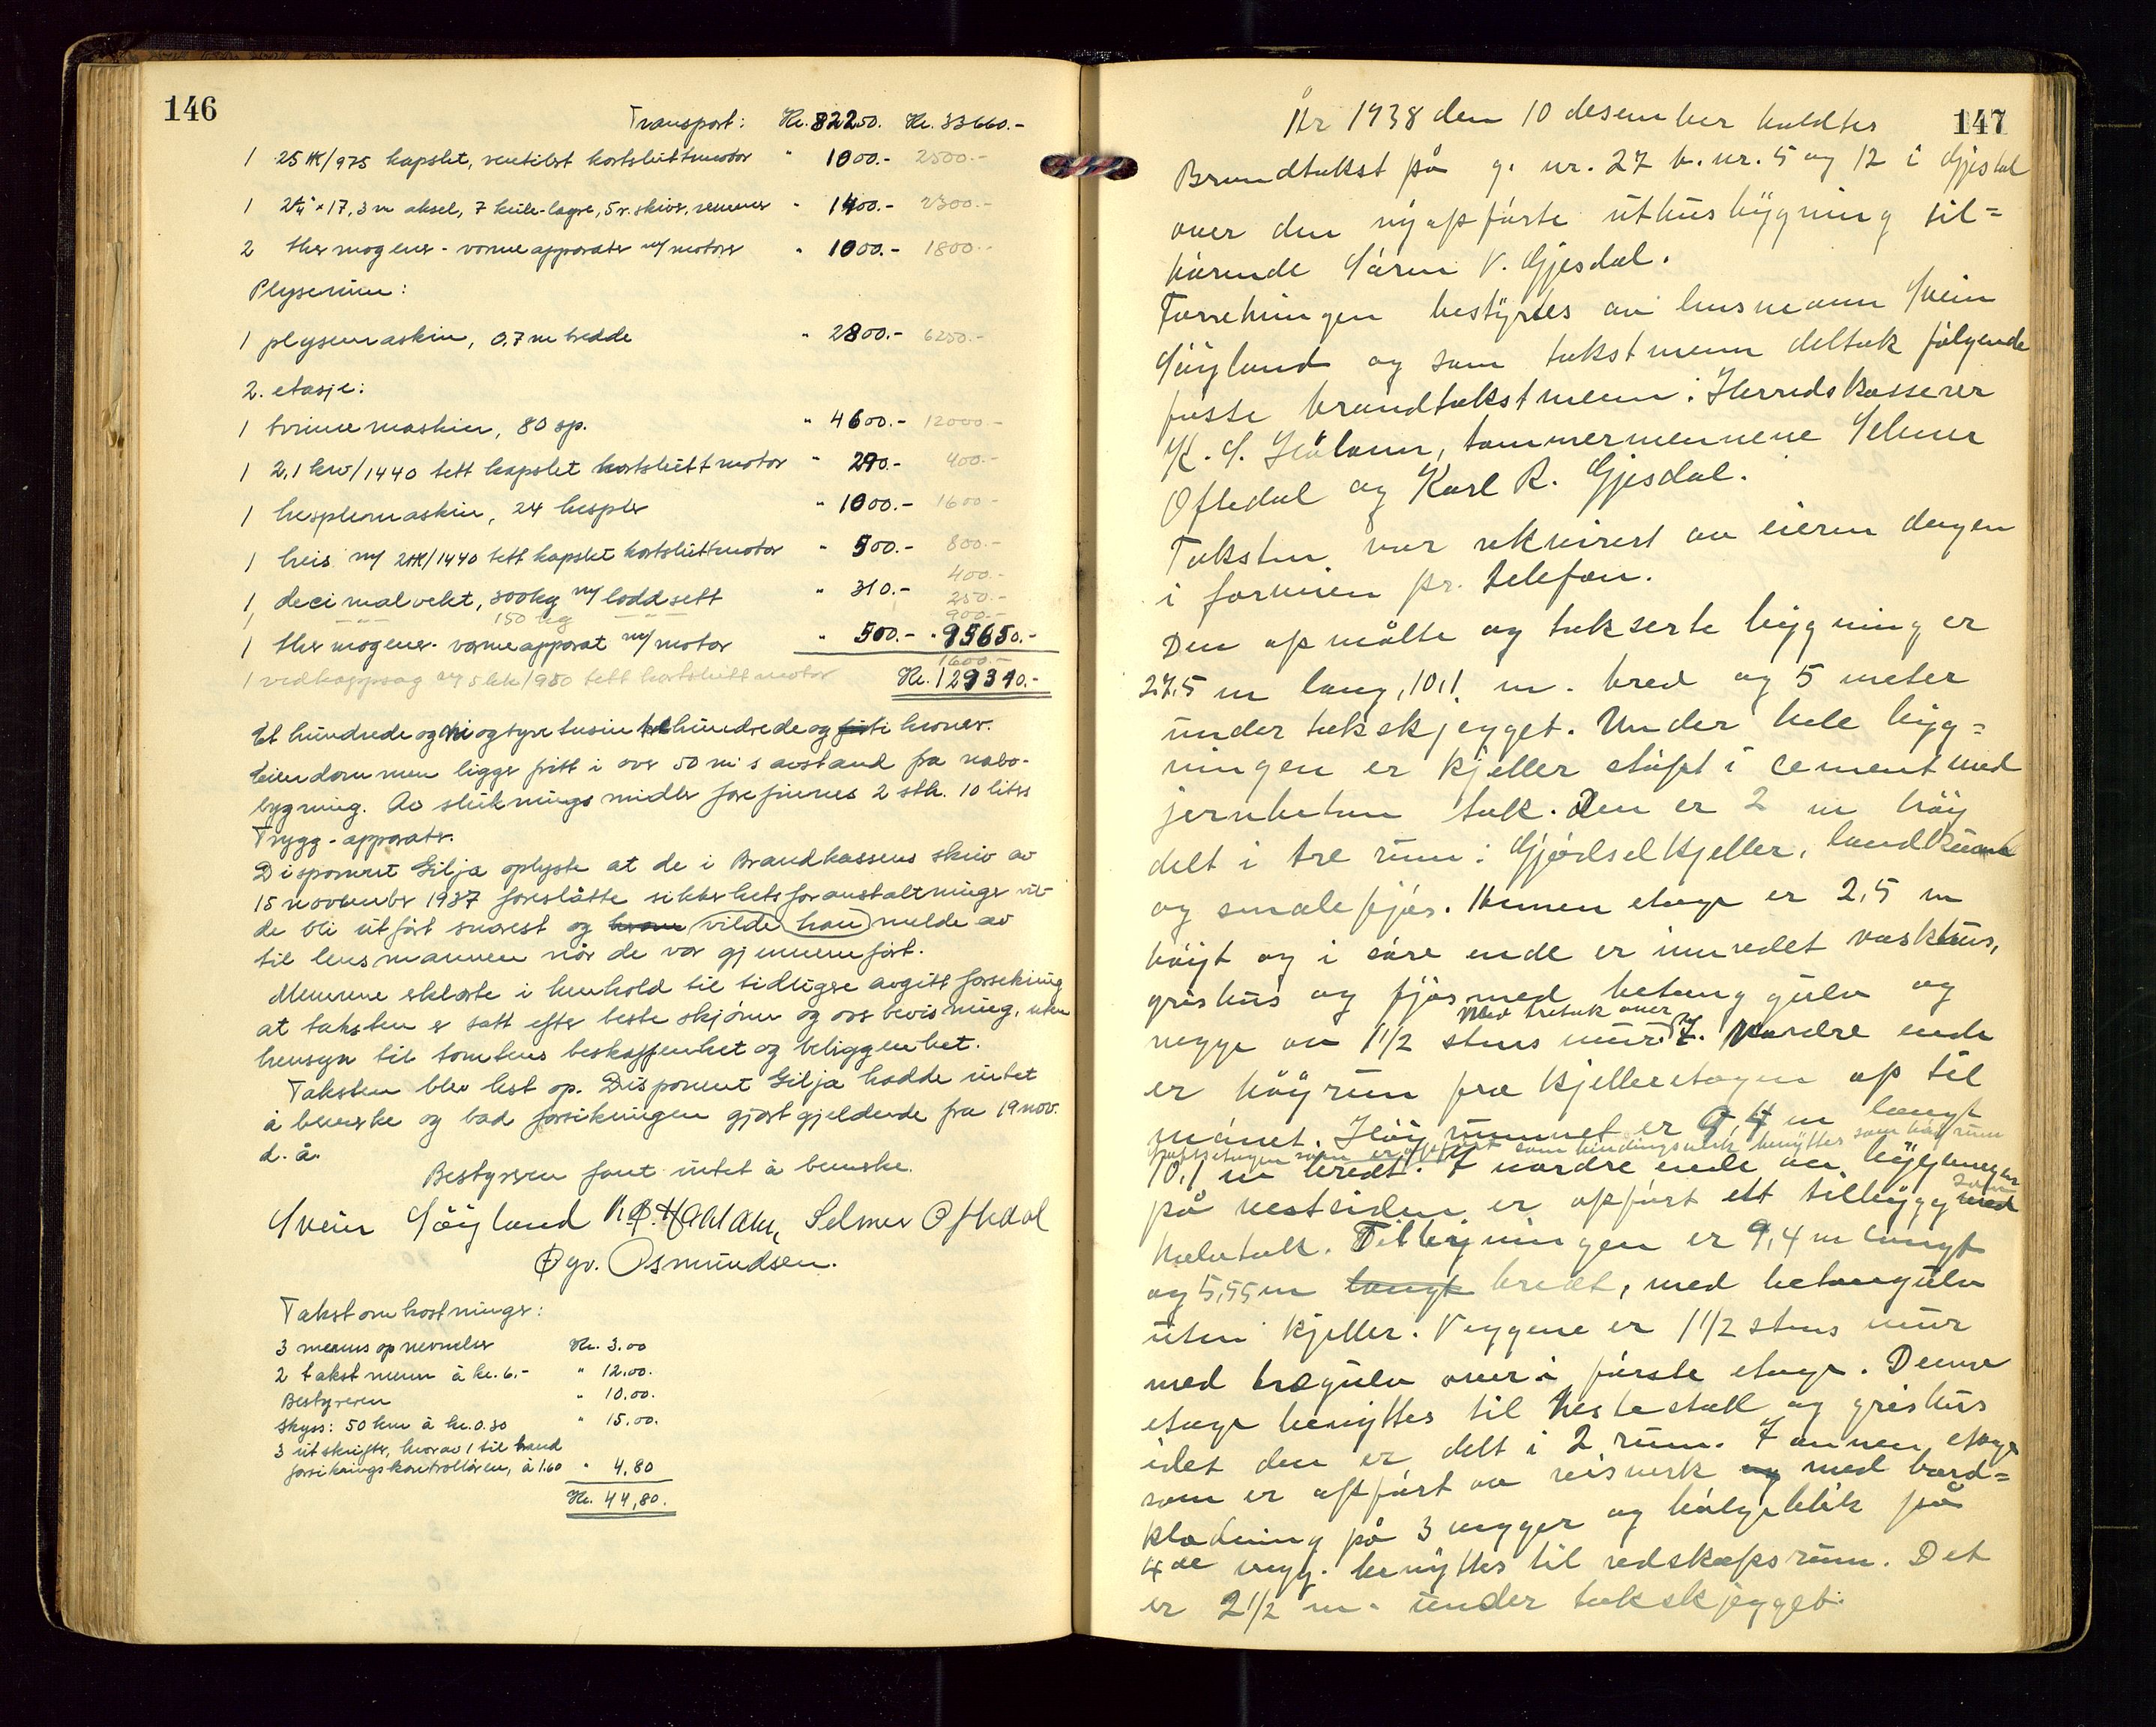 146
Transport: Kr. 82250. Kr. 33660.-
1 25 HK/975 kapslet, ventilert kortsluttmotor " 1000.- 2500.-
1 2¼" x 17,3 m aksel, 7 kule-lagre, 5 r. skiver, remmer " 1400.- 2300.-
2 thermogener-varmeapparater m/ motorer " 1000.- 1800.-
Plyserum:
1 plysemaskin, 0,7 m bredde " 2800.- 6250.-
2. etasje:
1 tvinnemaskin, 80 sp. " 4600.- 12000.-
1 2,1 kw/1440 tett kapslet kortsluttmotor " 290.- 400.-
1 hesplemaskin, 24 hespler " 1000.- 1600.-
1 heis m/ 2HK/1440 tett kapslet kortsluttmotor " 500.- 800.-
400.-
1 decimalvekt, 300kg m/ loddsett " 310.- 250.-
1 150 kg 900.-
1 thermogener-varmeapparat m/ motor " 500.- " 95650.-
1600.-
1 vedkappsag m/ 5 hk/950 tett kortsluttmotor Kr. 129310.-
Et hundrede og ni og tyve tusin tre hundrede og ti kroner.
Eiendommen ligger fritt i over 50 m's avstand fra nabo-
bygning. Av slukningsmidler forefinnes 2 stk. 10 liters
Trygg-apparater.
Disponent Gilja oplyste at de i Brandkassens skriv av
15 november 1937 foreslåtte sikkerhetsforanstaltninger vil-
de bli utført snarest og vilde han melde av
til lensmannen når de var gjennemført.
Mennene erklærte i henhold til tidligere avgitt forsikring
at taksten er satt efter beste skjønn og overbevisning, uten
hensyn til tomtens beskaffenhet og beliggenhet.
Taksten blev lest op. Disponent Gilja hadde intet
å bemerke og bad forsikringen gjort gjeldende fra 19 nov.
d. å.
Bestyreren fant intet å bemerke.
Svein Søyland K. S. Haaland, Selmer Oftedal
Øgv. Osmundsen.
Takstomkostninger:
3 menns opnevnelse Kr. 3.00
2 takstmenn à kr. 6.- " 12.00.
Bestyreren " 10.00.
Skyss: 50 km à kr. 0.30 " 15.00.
3 utskrifter, hvorav 1 til brand
forsikringskontrolløren, à 1.60 " 4,80
Kr. 44,80.
147
År 1938 den 10 desember holdtes
Brandtakst på g. nr. 27 b. nr. 5 og 12 i Gjestal
over den nyopførte uthusbygning til=
hørende Søren V. Gjesdal.
Forretningen bestyrtes av lensmann Svein
Søyland og som takstmenn deltok følgende
faste brandtakstmenn: Herredskasserer
K. S. Håland, tømmermennene Selmer
Oftedal og Karl R. Gjesdal.
Taksten var rekvirert av eieren dagen
i forveien pr. telefon.
Den opmålte og takserte bygning er
27,5 m lang, 10,1 m. bred og 5 meter
under takskjegget. Under hele byg=
ningen er kjeller støpt i cement med
jernbeton tak. Den er 2 m høy
delt i tre rum: Gjødselkjeller, landkum
og smalefjøs. Annen etage er 2,5 m
høyt og i søre ende er innredet vaskhus,
grishus og fjøs med betong gulv og
med tretak over
vegge av 1 1/2 stens mur. I nordre ende
er høyrum fra kjelleretagen op til
mønet. Høyrummet er 9,4 m langt
loftsetagen som er opført som bindingsverk benyttes som høyrum
10,1 m bredt. I nordre ende av bygningen
på vestsiden er opført ett tilbygg med
halvtak. Tilbygningen er 9,4 m langt
og 5,55 m langt bredt, med betongulv
uten kjeller. Veggene er 1 1/2 stens mur
med tregulv over i første etage. Denne
etage benyttes til hestestall og grishus
idet den er delt i 2 rum. I annen etage
som er opført av reisverk og med bord=
kledning på 3 vegger og bølgeblik på
4de vegg. benyttes til redskapsrum. Det
er 2 1/2 m. under takskjegget.